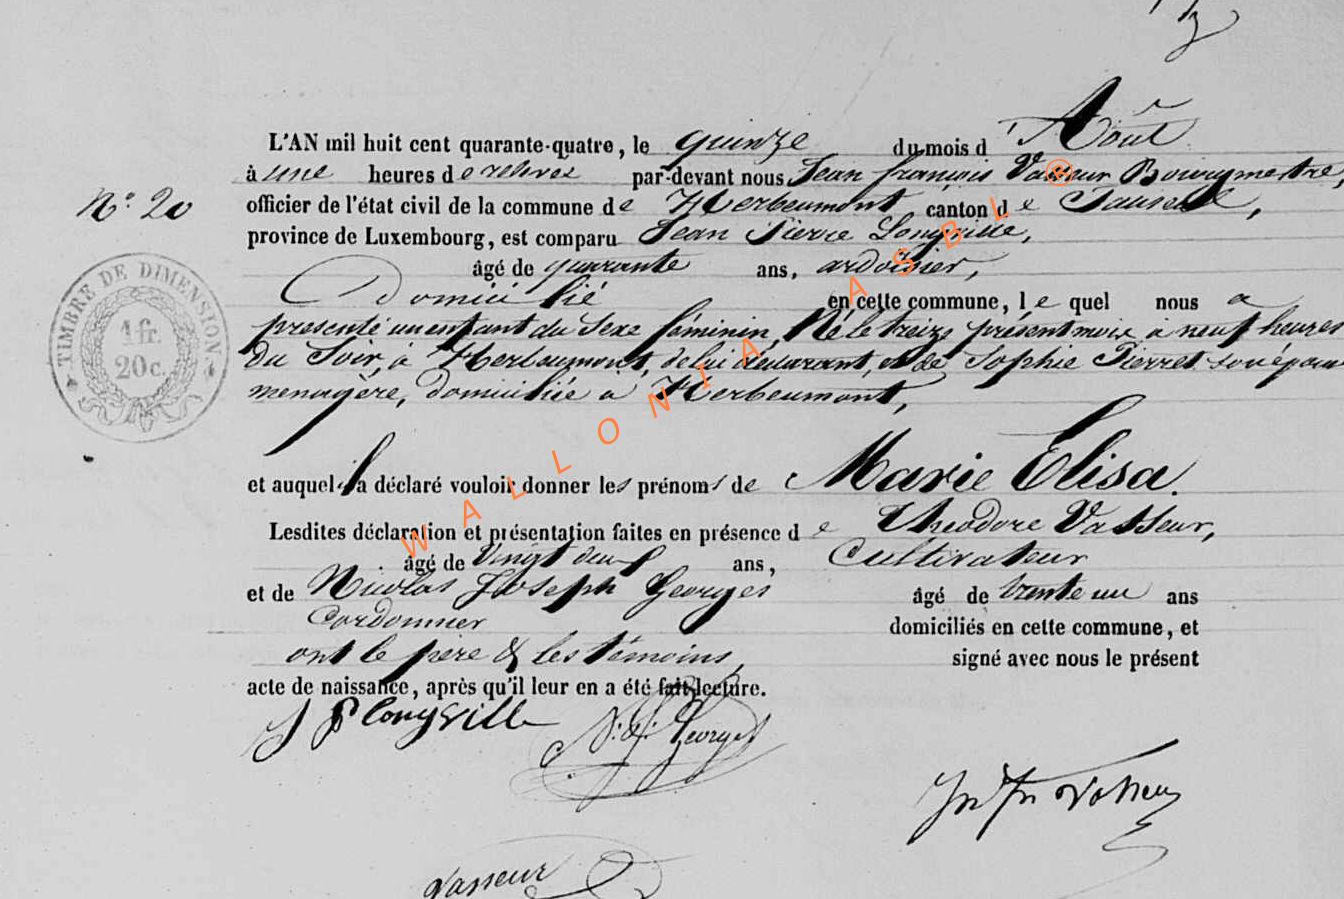 N.° 20
TIMBRE DE DIMENSION.
1 fr.
20 c.
L'AN mil huit cent quarante-quatre, le quinze du mois d'Août
à une heures de relevée par-devant nous Jean françois Vasseur Bourgmestre,
officier de l'état civil de la commune de Herbeumont canton de
province de Luxembourg, est comparu Jean Pierre Longville,
âgé de quarante ans, ardoisier,
Domicilié en cette commune, lequel nous a
presenté un enfant du Sexe féminin, Né le treize présent mois à neuf heures
du Soir, à Herbeumont, de lui déclarant, et de Sophie Pierret son épouse
menagère, domiciliée à Herbeumont,
et auquel il a déclaré vouloir donner les prénoms de Marie Elisa.
Lesdites déclaration et présentation faites en présence de Theodore Vasseur,
âgé de Vingt deux ans, Cultivateur
et de Nicolas Joseph Georges âgé de trente un ans
Cordonnier domiciliés en cette commune, et
ont le père & les témoins, signé avec nous le présent
acte de naissance, après qu'il leur en a été fait lecture.
J P Longville
N. J. Georges
Vasseur
WALLONIA ASBL ®